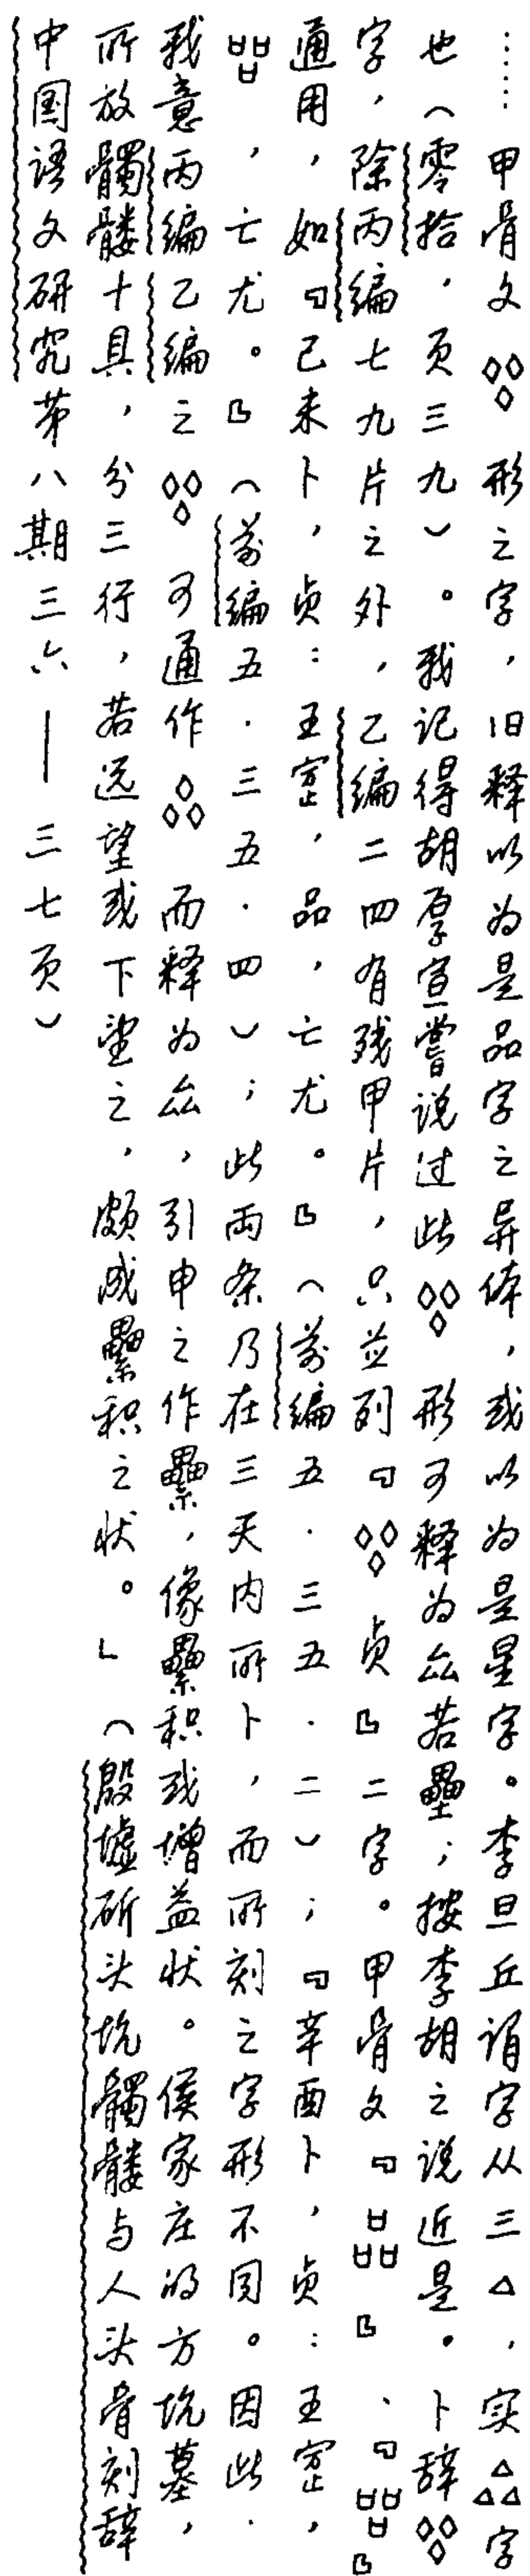 ……甲骨文形之字，旧释以为是品字之异体，或以为是星字。李旦丘谓字从三△，实字
也（零拾，页三九）。我记得胡厚宣尝说过此形可释为厽若壘；按李胡之说近是。卜辞
字，除丙编七九片之外，乙编二四有残甲片，只并列『贞』二字。甲骨文『』、『』
通用，如『己未卜，贞：王𡧊，品，亡尤。』（前编五·三五·二）；『辛酉卜，贞：王𡧊，
，亡尤。』（前编五·三五·四）；此两条乃在三天内所卜，而所刻之字形不同。因此，
我意丙编乙编之可通作而释为厽，引申之作纍，像纍积或增益状。侯家庄的方坑墓，
所放髑髅十具，分三行，若远望或下望之，颇成纍积之状。」（殷墟斫头坑髑髅与人头骨刻辞
中国语文研究第八期三六——三七页）